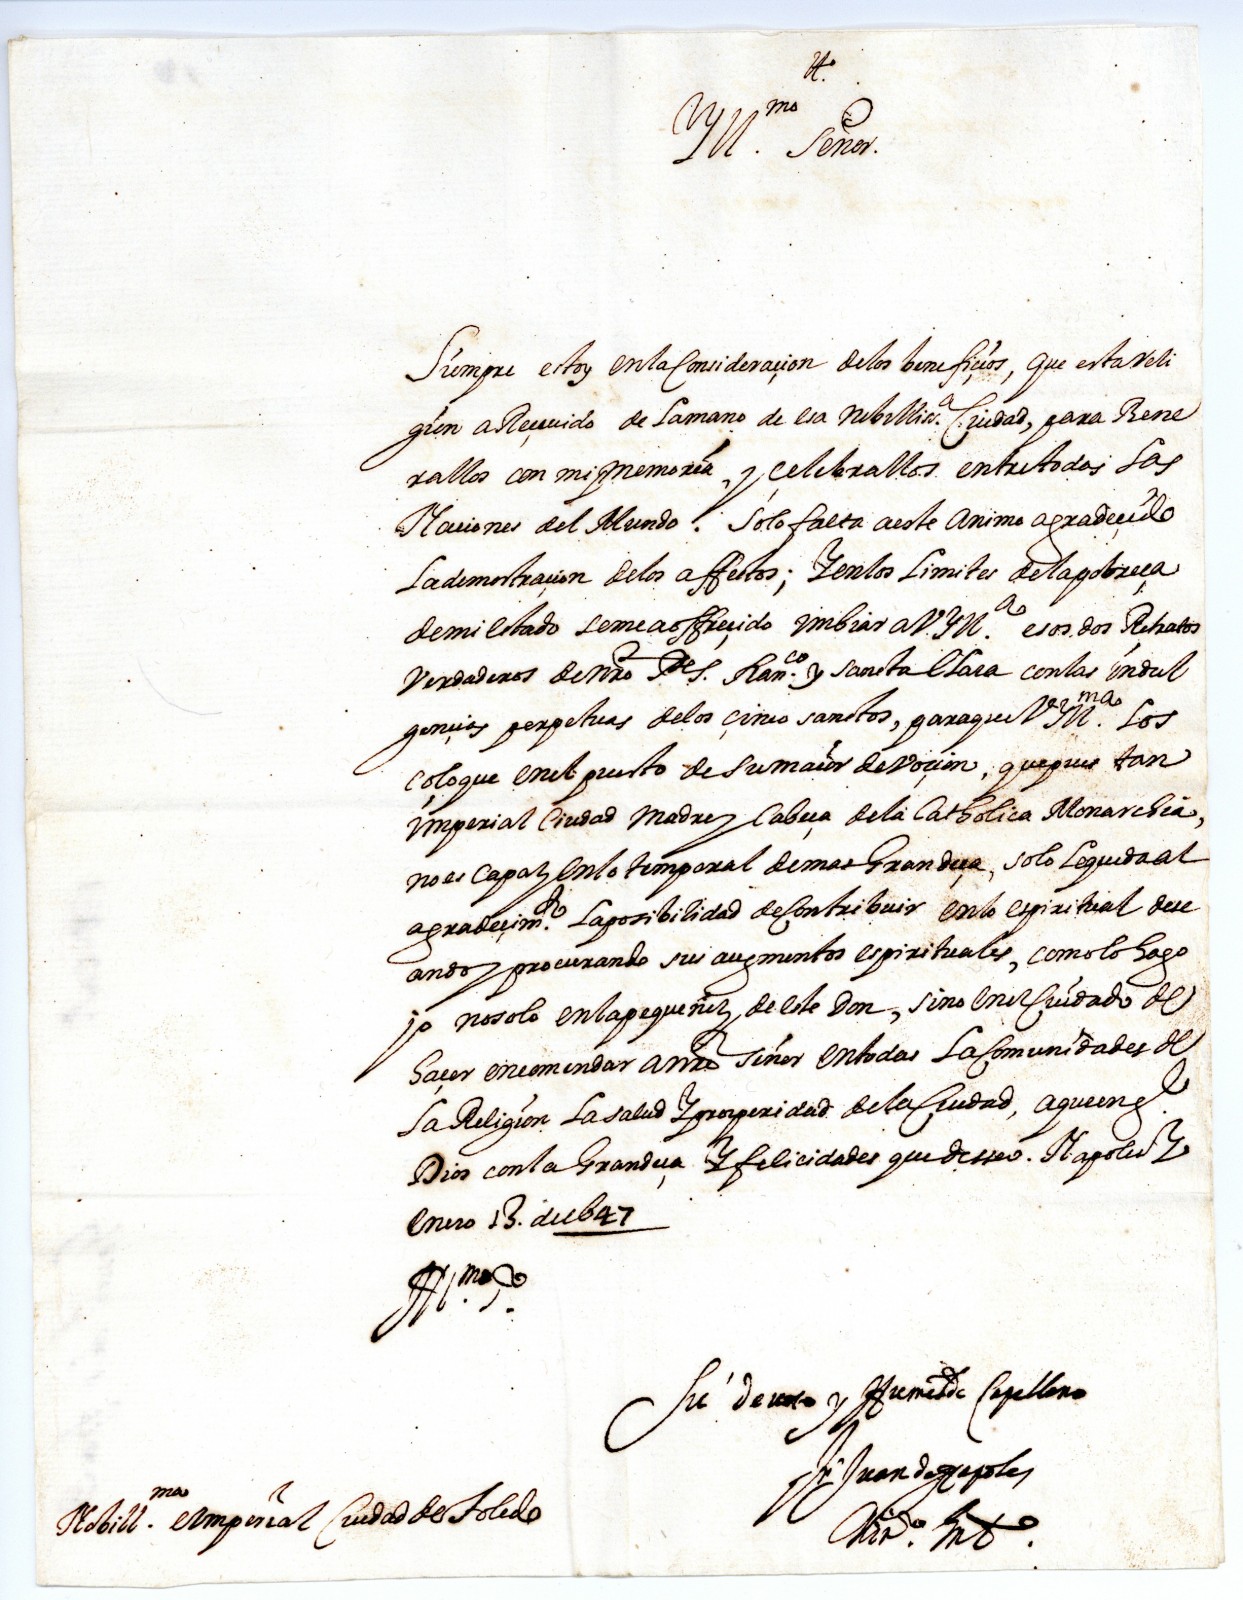 Yll.mo Señor.
Siempre estoy en la Consideraçion de los benefiçios, que esta Reli
gion a Reçeuido de La mano de esa Nobilliss.a Ciudad, para Vene
rallos con mi memoria, y çelebrallos entre todas Las
Naçiones del Mundo. Solo falta a este animo agradeçido
La demostraçion de los affectos; Y en los Limites de la pobreça
de mi estado se me a offreçido imbiar a V. Yll.a esos dos Retratos
Verdaderos de nro Pe S. Fran.co y sancta Clara con las indul
gençias perpetuas de los çinco sanctos, para que V. Yll.ma Los
coloque en el puesto de su maior deuoçion, que pues tan
imperial Ciudad Madre y Cabeça de la Catholica Monarchia,
no es capaz en lo temporal de mas Grandeça, solo Le queda al
agradeçim.to La posibilidad de Contribuir en lo espiritual dese
ando y procurando sus augmentos espirituales, como lo hago
jo no solo en la pequeñez de este Don, sino en el Cuidado de
haçer encomendar a nro Señor en todas Las Comunidades de
La Religion La salud Y prosperidad de la Ciudad, a quien g.e
Dios con la Grandeça Y felicidades que desseo. Napoles Y
Enero 13. de 1647
Yll.mo S.r
Su deuoto y Humilde Capellano
fr. Juan de Napoles
Min.o Gnl.
Nobill.ma e Imperial Ciudad de Toledo